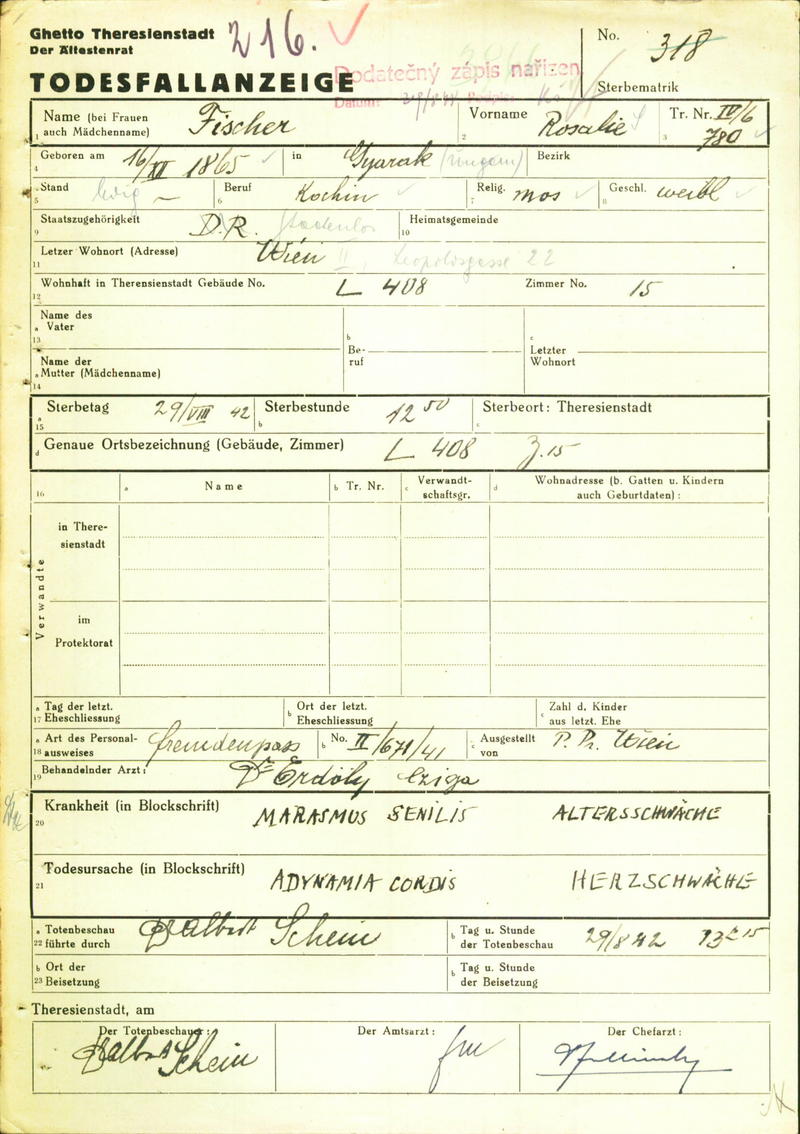 Ghetto Theresienstadt 216. No. 318
Der Ältestenrat
TODESFALLANZEIGE Dodatečný zápis nařízen Sterbematrik
Datum:
Name (bei Frauen auch Mädchenname) Fischer Vorname Rosalie S Tr. Nr. IV/6 780
1 2 3
Geboren am 16/XII 1865 in Gyarak (Ungarn) Bezirk
4
Stand ledig — Beruf Köchin Relig. mos Geschl. weibl
5 6 7 8
Staatszugehörigkeit D.R. staatenlos Heimatsgemeinde
9 10
Letzer Wohnort (Adresse) Wien II, Leopoldsgasse 22
11
Wohnhaft in Therensienstadt Gebäude No. L 408 Zimmer No. 15
12
Name des
a Vater
13
b Be-ruf
c Letzter Wohnort
Name der
a Mutter (Mädchenname)
14
a Sterbetag 29/VIII 42 b Sterbestunde 12 50 c Sterbeort: Theresienstadt
15
d Genaue Ortsbezeichnung (Gebäude, Zimmer) L 408 Z.15
16 a Name b Tr. Nr. c Verwandt-schaftsgr. d Wohnadresse (b. Gatten u. Kindern
auch Geburtdaten) :
Verwandte
in There-
sienstadt
im
Protektorat
a Tag der letzt. b Ort der letzt. c Zahl d. Kinder
17 Eheschliessung Eheschliessung aus letzt. Ehe
a Art des Personal- Fremdenpass b No. II/671/41 c Ausgestellt P. Pr. Wien
18 ausweises von
19 Behandelnder Arzt: Dr Erdöly
Krankheit (in Blockschrift) MARASMUS SENILIS ALTERSSCHWÄCHE
20
Todesursache (in Blockschrift) ADYNAMIA CORDIS HERZSCHWÄCHE
21
a Totenbeschau Albert Schein b Tag u. Stunde 29/8 42
22 führte durch der Totenbeschau
b Ort der b Tag u. Stunde
23 Beisetzung der Beisetzung
Theresienstadt, am
Der Totenbeschauer: Der Amtsarzt: Der Chefarzt:
Albert Schein